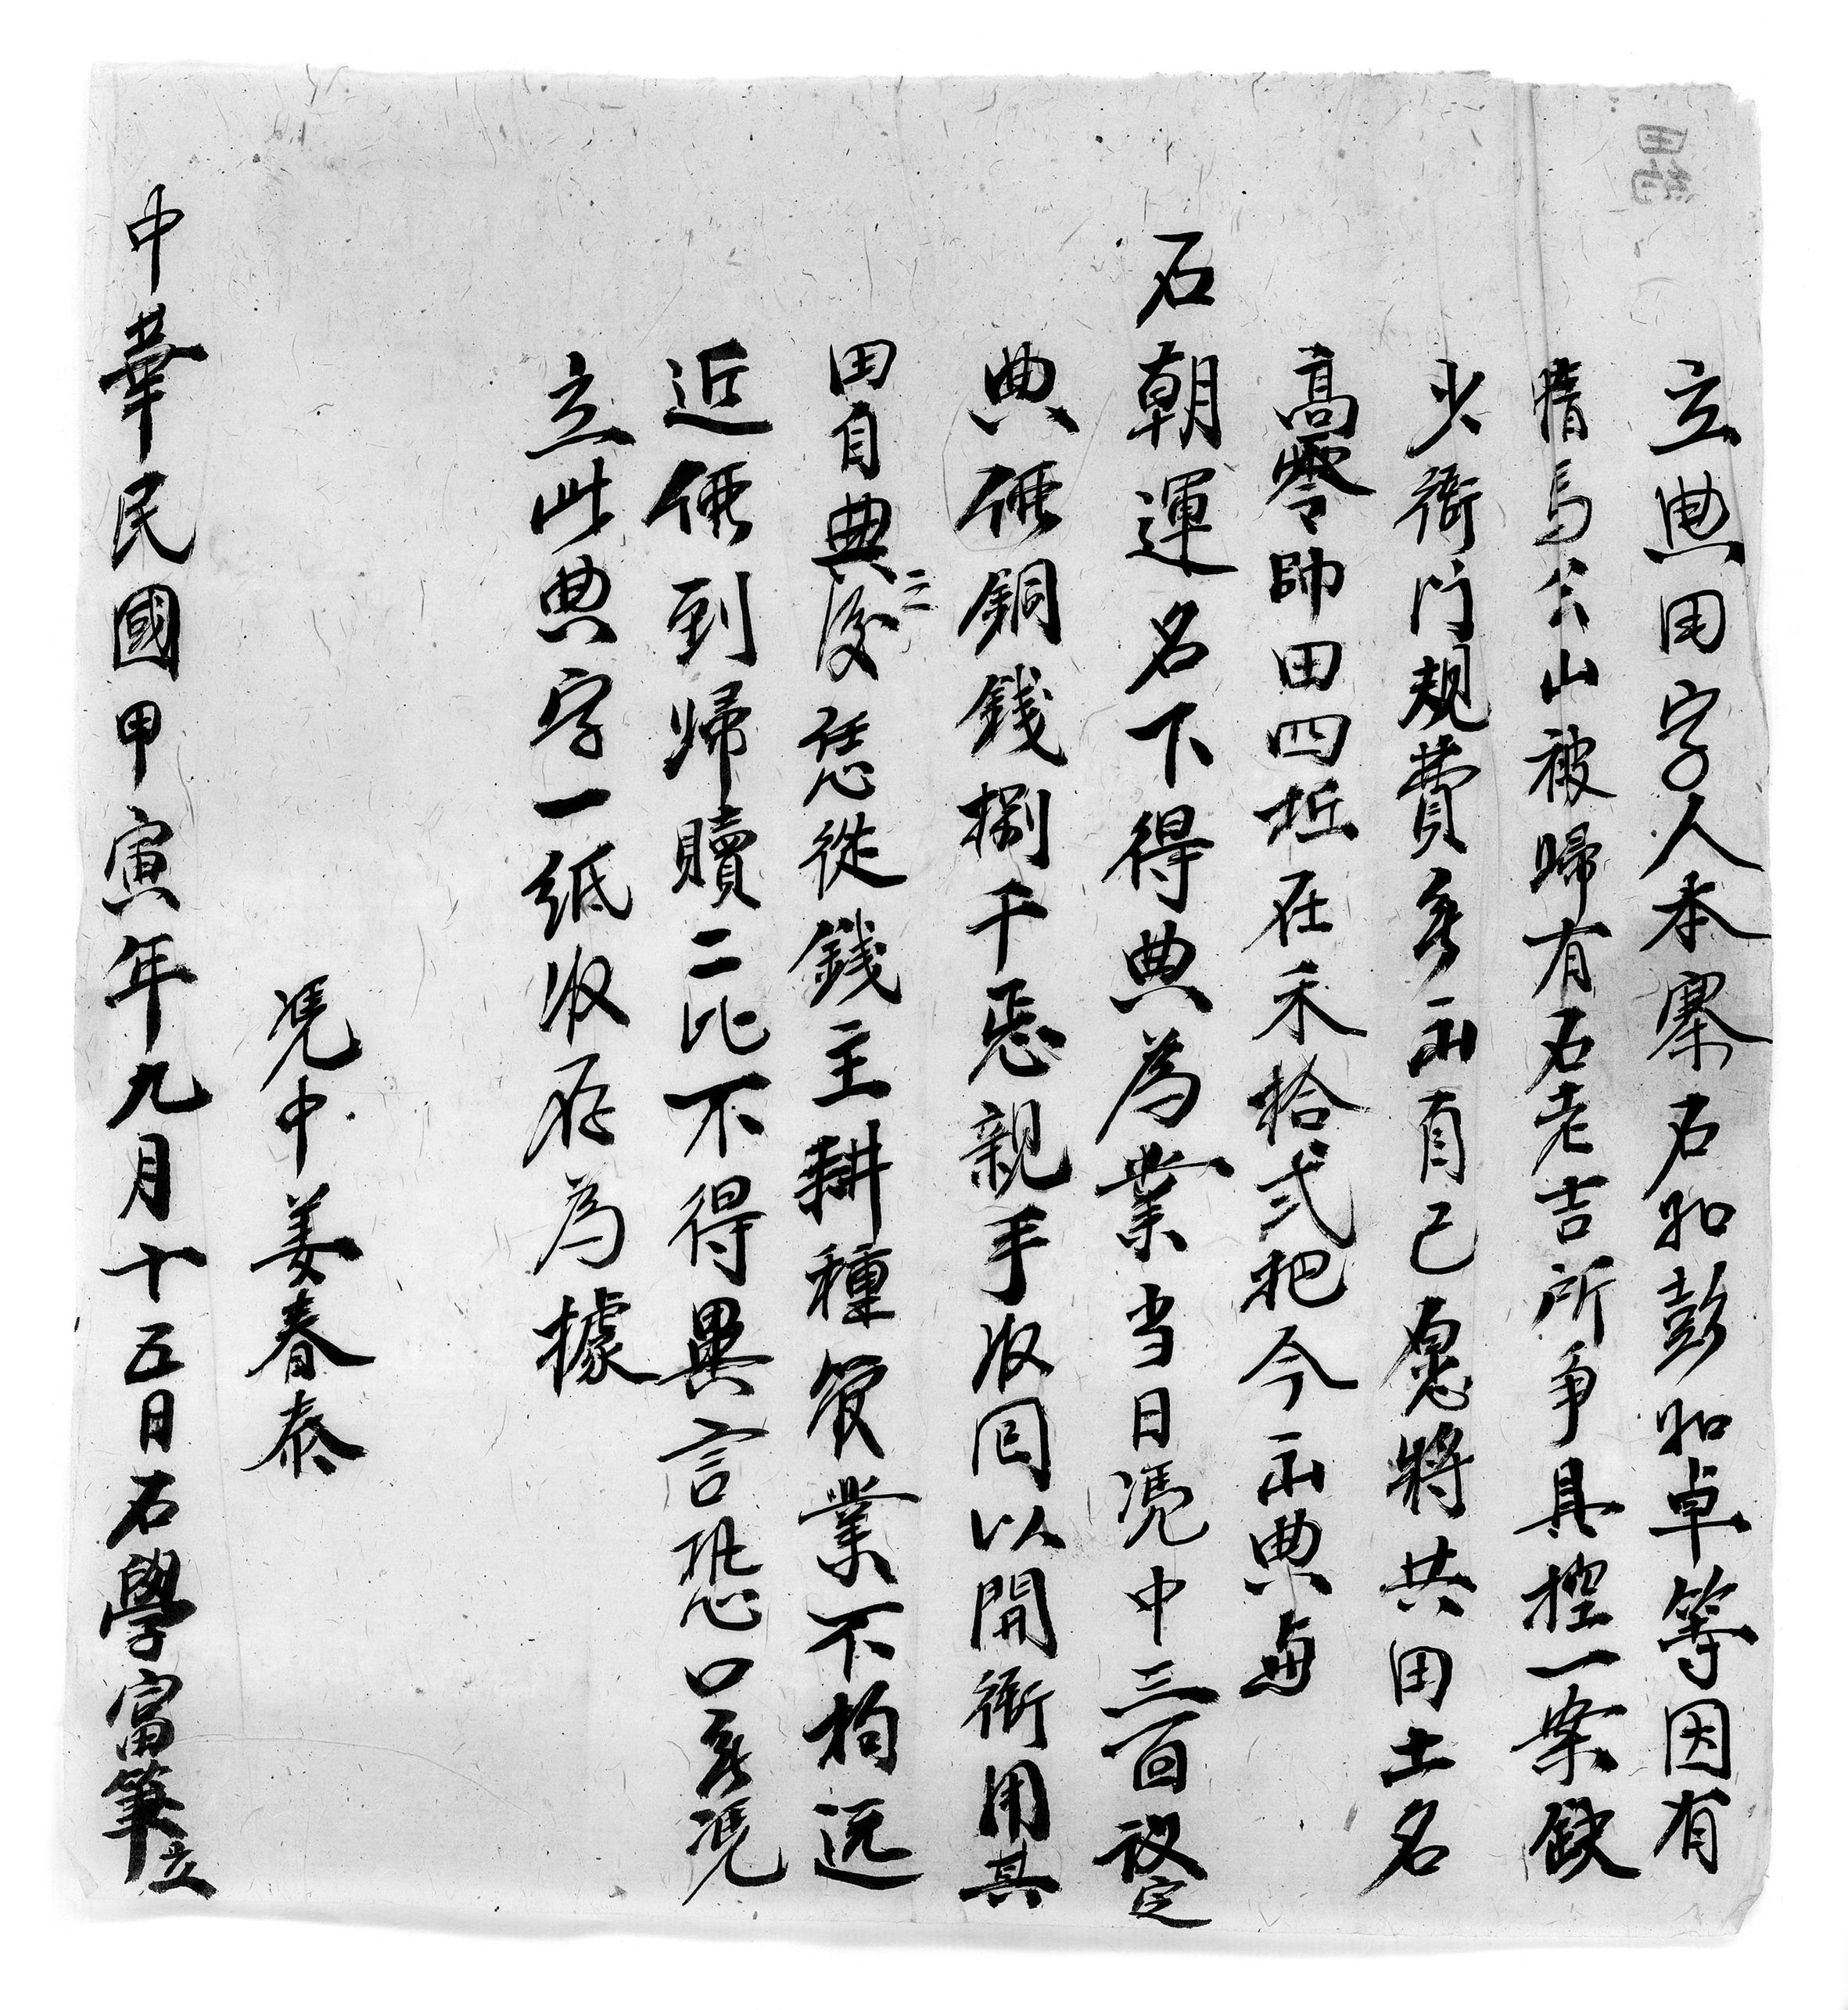 立典田字人本寨石和彭和卓等因有
猪馬公山被歸有石老吉所爭具控一案缺
少衙門規費無出自己愿將共田土名
高零帥田四坵在禾拾弍把今出典与
石朝運名下得典為業当日憑中三面議定
典價銅錢捌千恁親手收回以開衙用其
田自典後三三恁從錢主耕種管業不拘远
近價到歸贖二比不得異言恐口無憑
立此典字一紙收存為據
憑中姜春泰
中華民國甲寅年九月十五日石學富筆立